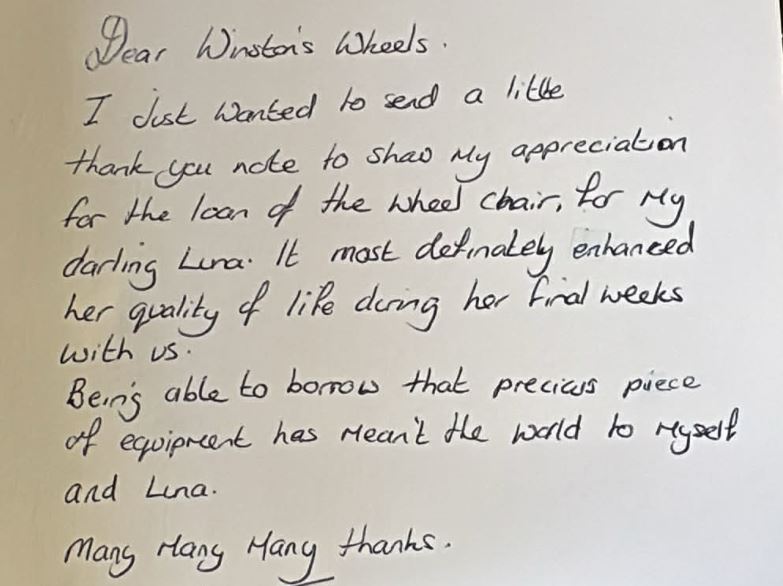 Dear Winston's Wheels.
I Just wanted to send a little
thank you note to show My appreciation
for the loan of the wheel chair, for My
darling Luna. It most definately enhanced
her quality of life during her final weeks
with us.
Being able to borrow that precious piece
of equipment has Mean't the world to Myself
and Luna.
Many Many Many thanks.